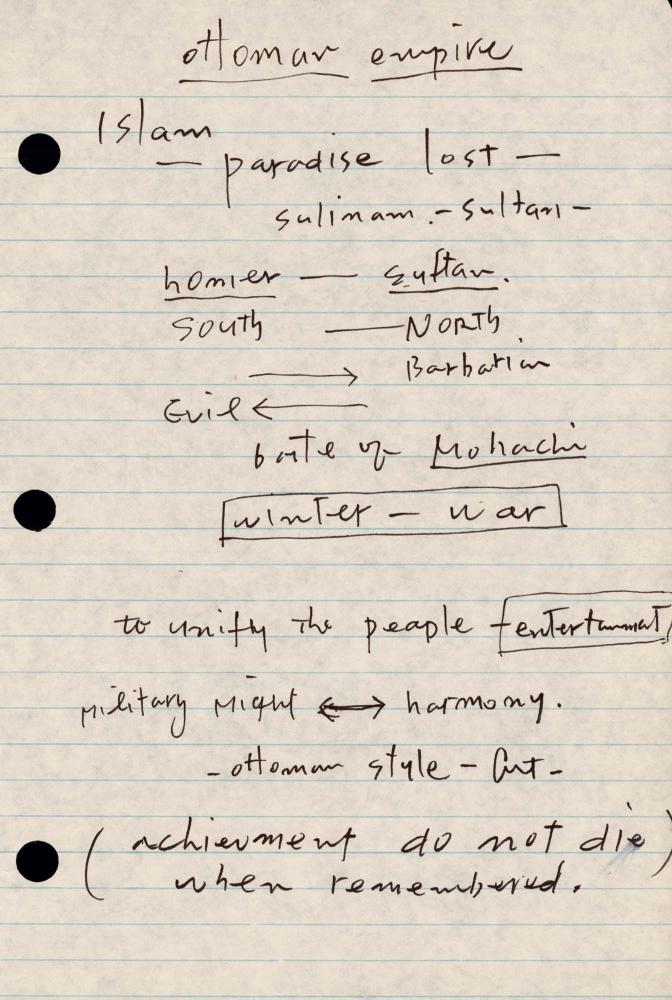 ottoman empire
Islam
— paradise lost —
sulinam - sultan -
homer — sultan.
SOUTH — NORTH
→ Barbarian
Evil ←
batte of Mohachi
winter - war
to unify the people - entertanmat
Military Might ↔ harmony.
- ottoman style - Art -
( achievment do not die )
when remembered.